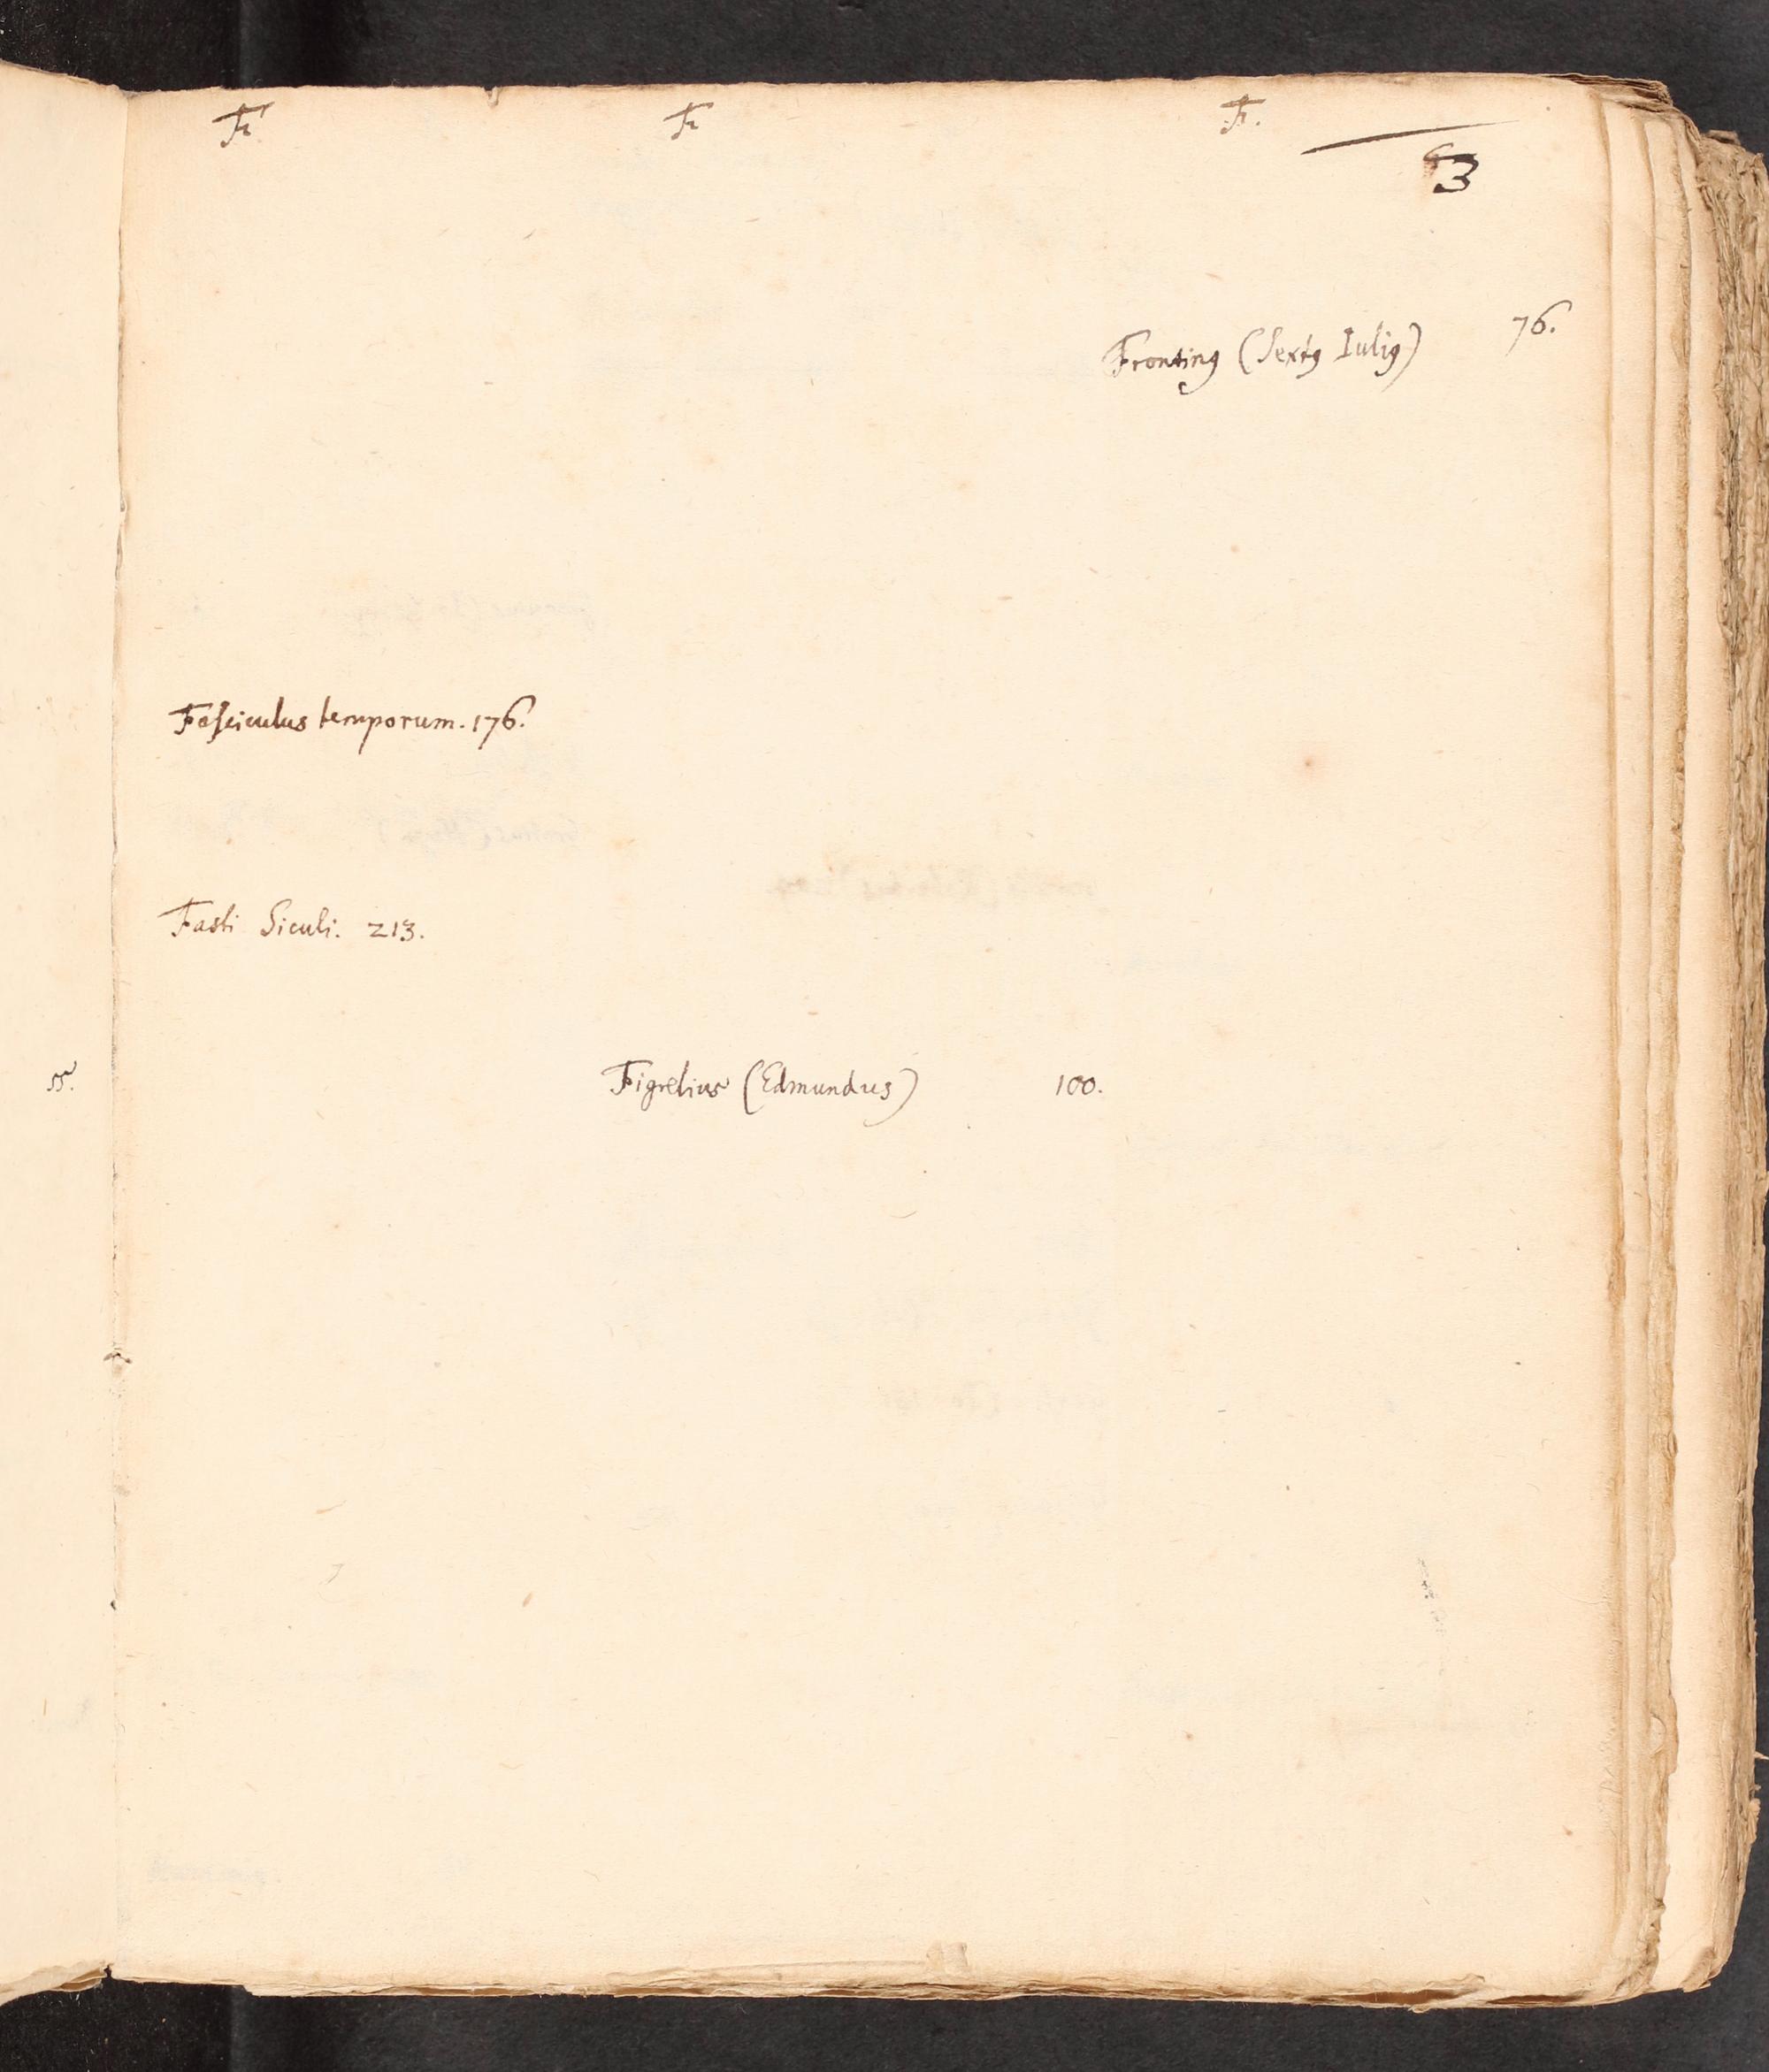 F. F F.
53
Frontinꝰ (Sextꝰ Iuliꝰ) 76.
Fasciculus temporum. 176.
Fasti Siculi. 213.
55.
Figrelius (Edmundus) 100.